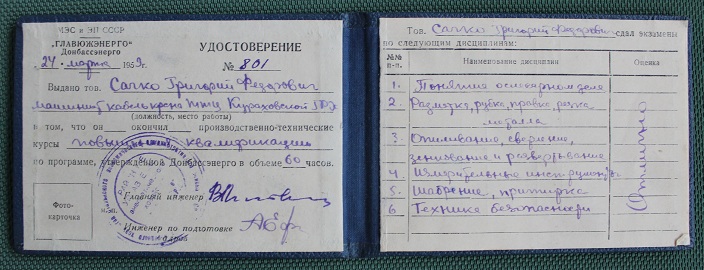 МЭС и ЭП СССР
„ГЛАВЮЖЭНЕРГО"
Донбассэнерго
„24" марта 1959 г.
УДОСТОВЕРЕНИЕ
№ 801
Выдано тов. Сапко Григорий Федорович
машинист Кураховской ГРЭС
(должность, место работы)
в том, что он окончил производственно-технические
курсы повыш. квалификации
по программе, утвержденной Донбассэнерго в объеме 60 часов.
Фото-
карточка
Главный инженер
Инженер по подготовке
кадров
Тов. Сапко Григорий Федорович сдал экзамены
по следующим дисциплинам:
№№ п-п.
Наименование дисциплин
Оценка
1. Понятие о слесарном деле
2. Разметка, рубка, правка, резка
металла
3. Опиливание, сверление,
зенкование и развертывание
4. Измерительные инструменты
5. Шабрение, притирка
6 Техника безопасности
Отлично